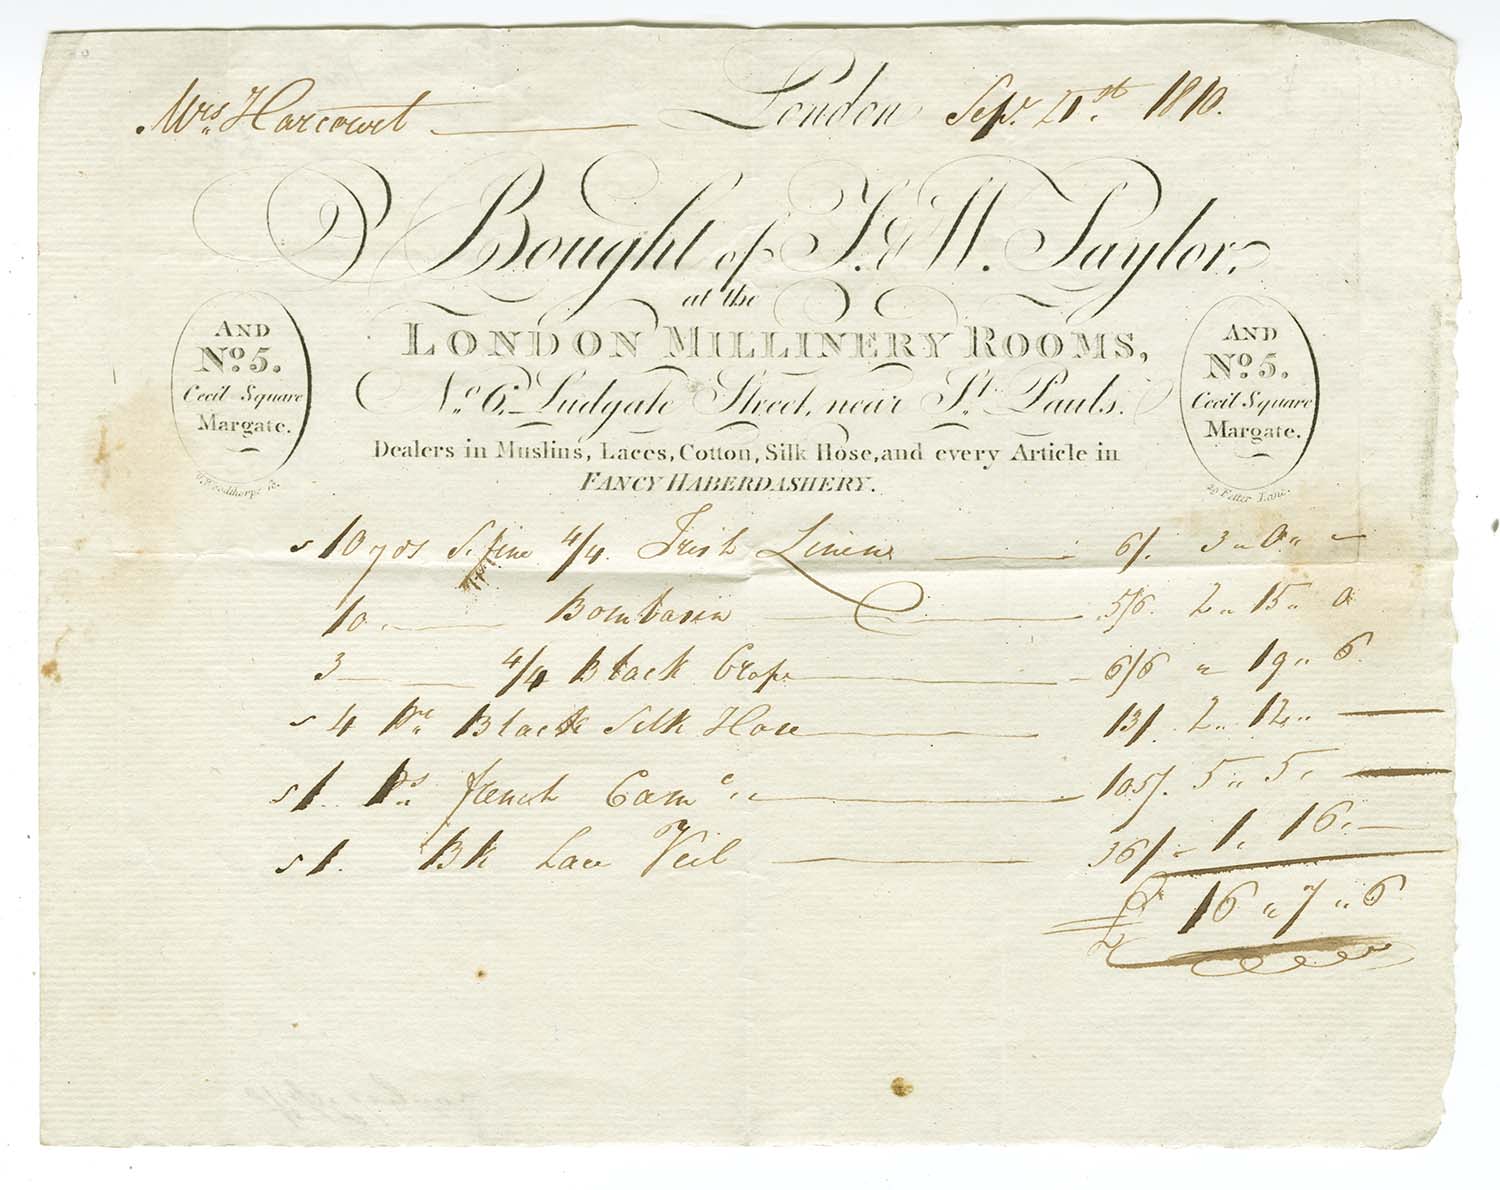 Mrs Harcourt London Sepr. 21st 1810.
Bought of T. & W. Taylor,
at the
LONDON MILLINERY ROOMS,
No. 6, Ludgate Street, near St. Pauls.
Dealers in Muslins, Laces, Cotton, Silk Hose, and every Article in
FANCY HABERDASHERY.
AND
No. 5.
Cecil Square
Margate.
AND
No. 5.
Cecil Square
Margate.
29 Fetter Lane.
s 10 yds S. fine 4/4 Irish Linen 6/. 3 " 0 " -
10. Bombasin 5/6. 2 " 15 " 0
3 4/4 Black Crape 6/6 " 19 " 6
s 4 Pr Black Silk Hose 13/. 2 " 12 " -
s 1. Ps french Camc 105/. 5 " 5 " -
s 1. Bk Lace Veil 36/- 1 " 16 " -
£ 16 " 7 " 6